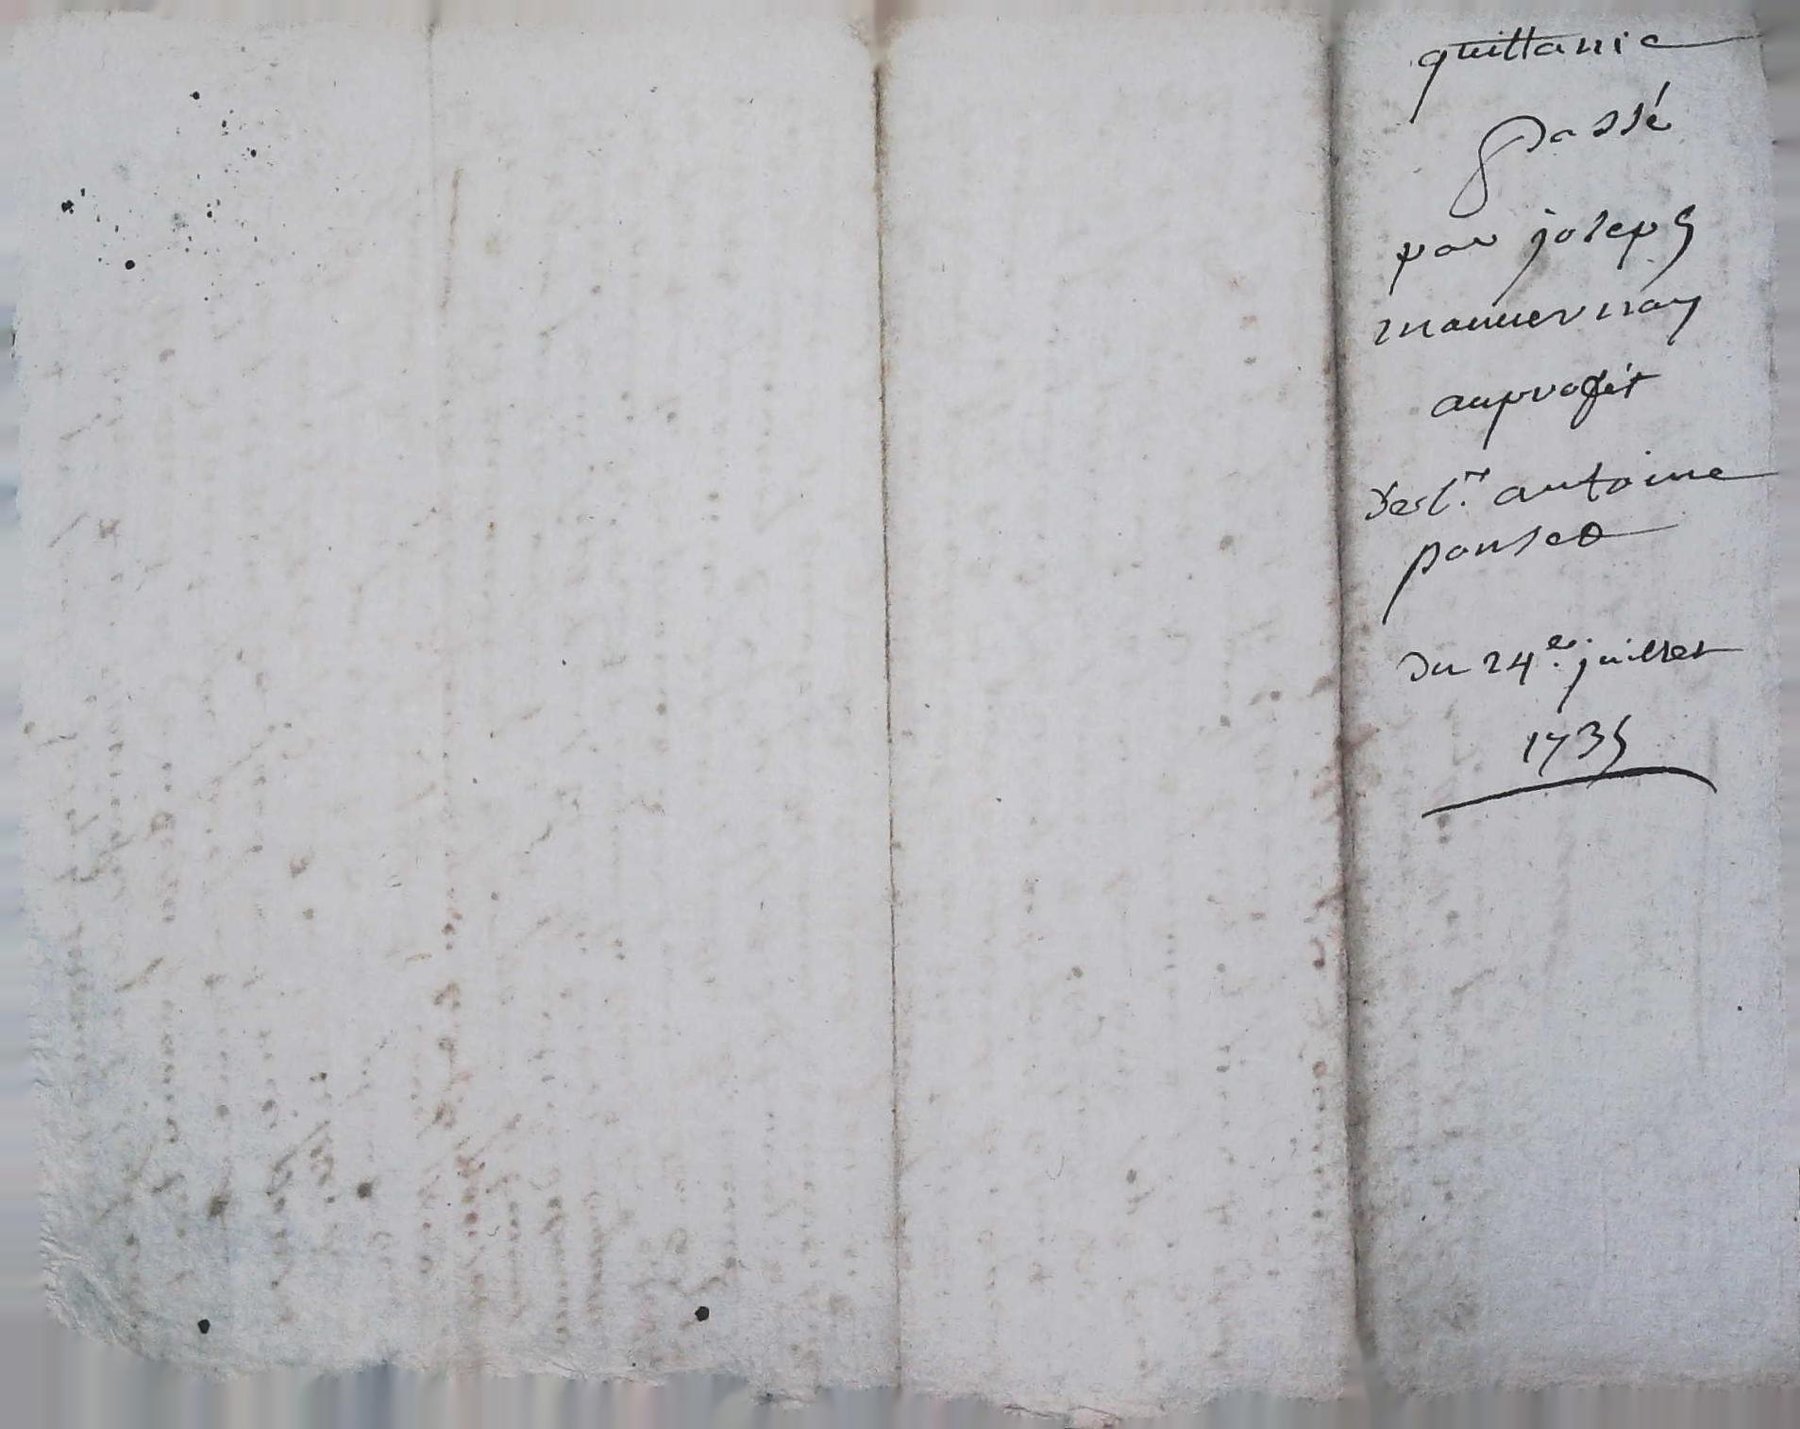 quittance
passé
par joseph
mauvernay
au profit
de sr. antoine
ponset
du 24e. juillet
1735